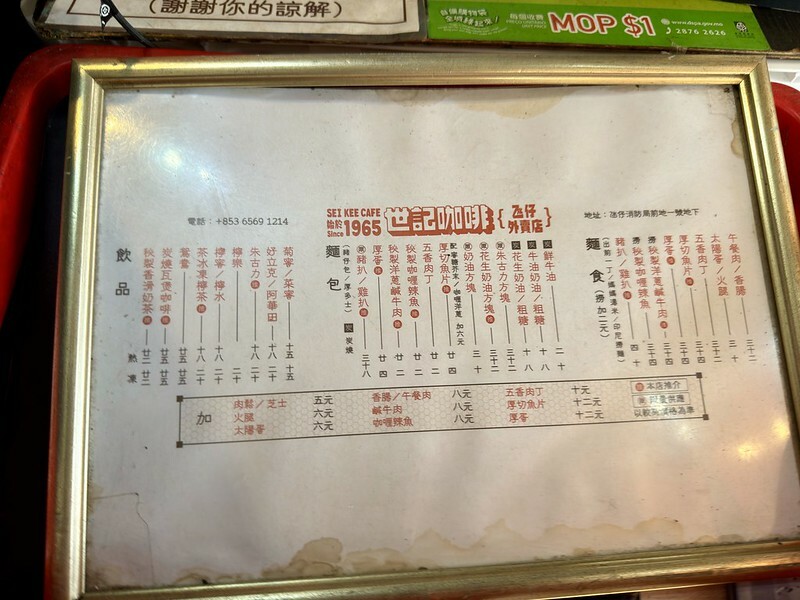 (謝謝你的諒解)
自備購物袋
全城綠起來!
每個收費
MOP $1
www.dspa.gov.mo
2876 2626
電話：+853 6569 1214
SEI KEE CAFE
始於
Since 1965
世記咖啡
{氹仔外賣店}
地址：氹仔消防局前地一號地下
飲品
熱 凍
秘製香滑奶茶 廿二 廿二
炭燒瓦煲咖啡 廿五 廿五
鴛鴦 廿五 廿五
茶冰凍檸茶 十八 二十
檸蜜/檸水 十八 二十
檸樂 二十
朱古力 十八 二十
好立克/阿華田 十八 二十
菊蜜/菜蜜 十五 十五
麵包
(豬仔包/厚多士) 炭 炭燒
豬扒/雞扒 三十八
厚蛋 廿四
秘製洋蔥鹹牛肉 廿四
秘製咖喱辣魚 廿四
五香肉丁 廿二
厚切魚片 廿四
配蜜糖芥末/咖喱洋蔥 加六元
奶油方塊 三十
花生奶油方塊 三十二
朱古力方塊 三十二
花生奶油/粗糖 十八
牛油奶油/粗糖 十八
鮮牛油 二十
麵食
(出前一丁/媽媽湯米/印尼撈麵)
(撈加二元)
豬扒/雞扒 四十
撈 秘製咖喱辣魚
撈 秘製洋蔥鹹牛肉 三十四
厚蛋 三十四
厚切魚片 三十四
五香肉丁 三十二
太陽蛋/火腿 三十
午餐肉/香腸 三十二
加
肉鬆/芝士 五元
火腿 六元
太陽蛋 六元
香腸/午餐肉 八元
鹹牛肉 八元
咖喱辣魚 八元
五香肉丁 十元
厚切魚片 十二元
厚蛋 十二元
本店推介
限量供應
以較高價格為準